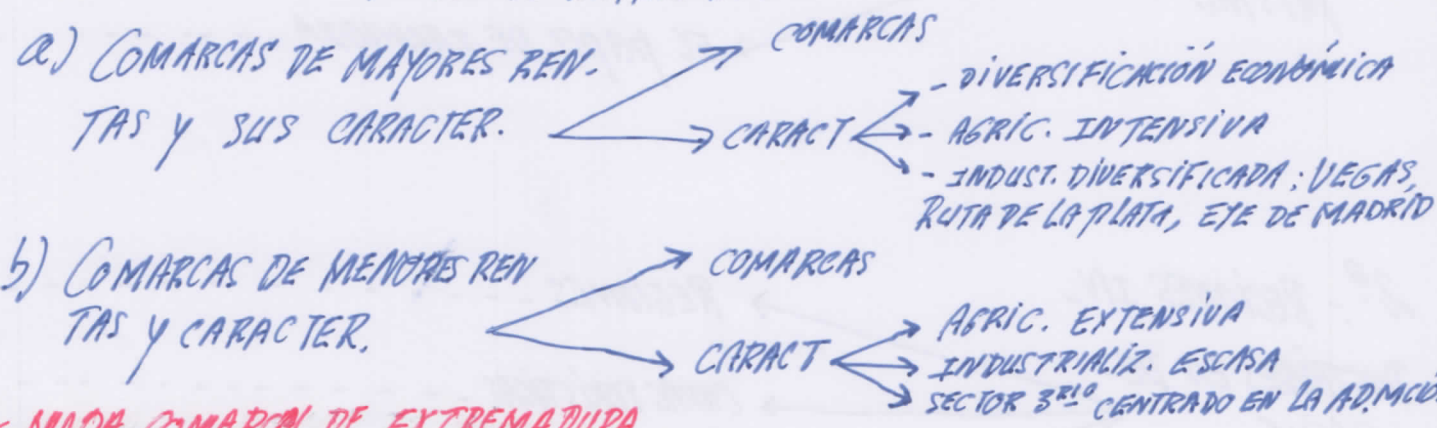 a) COMARCAS DE MAYORES REN-
TAS Y SUS CARACTER.
COMARCAS
CARACT
- DIVERSIFICACIÓN ECONÓMICA
- AGRIC. INTENSIVA
- INDUST. DIVERSIFICADA: VEGAS,
RUTA DE LA PLATA, EJE DE MADRID
b) COMARCAS DE MENORES REN
TAS Y CARACTER.
COMARCAS
CARACT
AGRIC. EXTENSIVA
INDUSTRIALIZ. ESCASA
SECTOR 3RIO CENTRADO EN LA ADMCIÓ
COMARCA DE EXTREMADURA